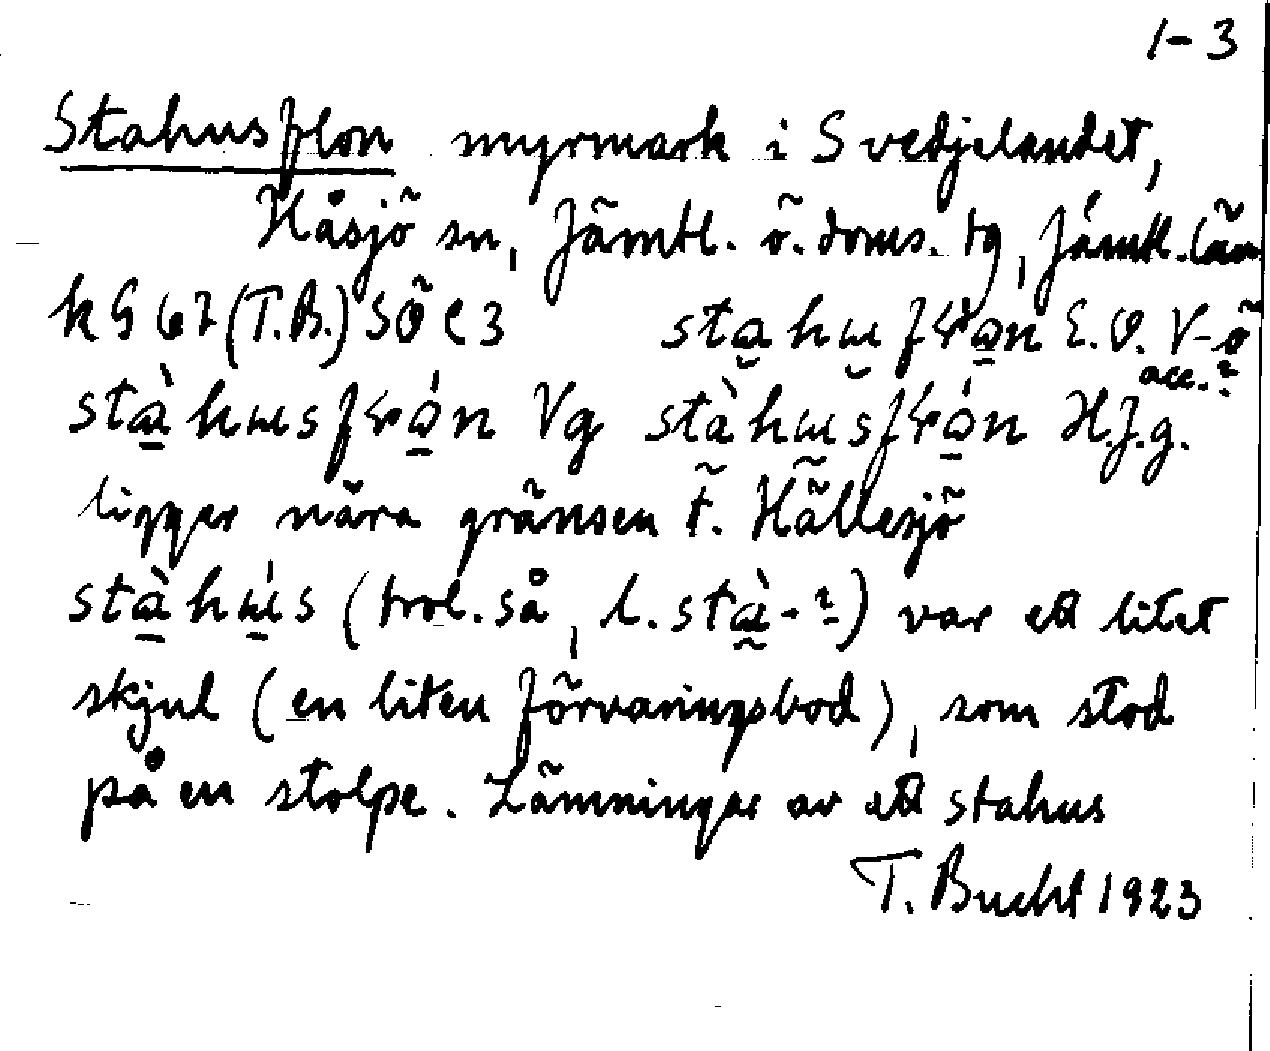 1-3
Stahusflon myrmark i Svedjelandet,
Håsjö sn, Jämtl. ö. doms. tg, Jämtl. län
k G 67 (T.B.) SÖ C 3 stahɯ fɽɷn E.O. V-ö
acc.?
stàhɯsfɽɷ́n Vg stàhɯsfɽɷ́n H.J.g.
ligger nära gränsen t. Hällesjö
stàhɯ́s (trol. så, l. stà-?) var ett litet
skjul (en liten förvaringsbod), som stod
på en stolpe. Lämningar av ett stahus
T. Bucht 1923